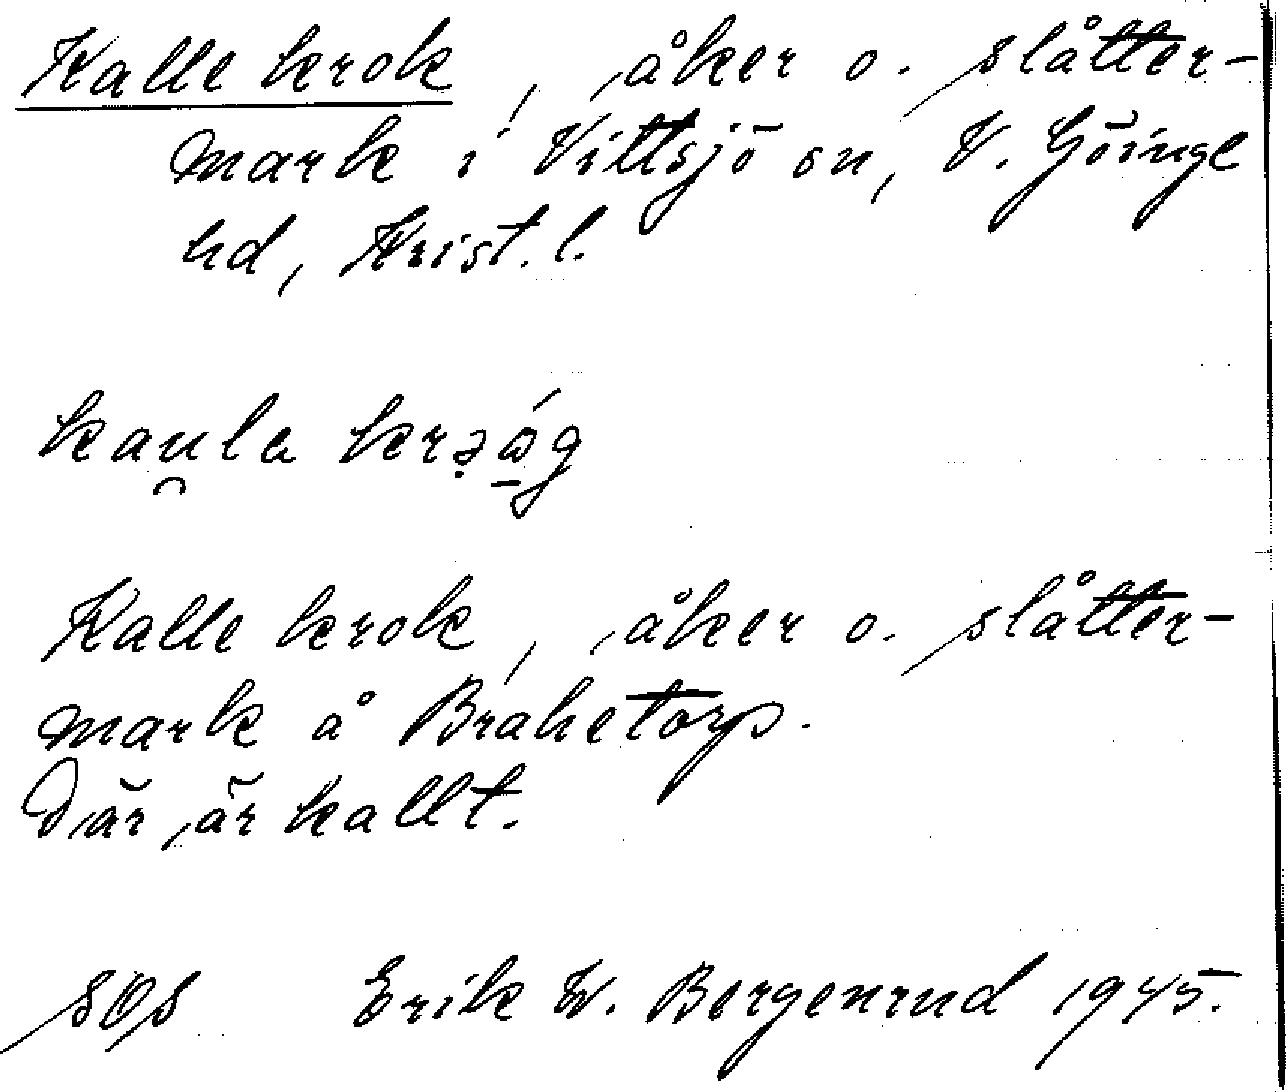 Kalle krok, åker o. slåtter-
mark i Vittsjö sn, V. Göinge
hd, Krist. l.
kau̯la krə̣ó̱g
Kalle krok, åker o. slåtter-
mark å Brahetorp.
Där är kallt.
SOS Erik W. Bergenrud 1945.